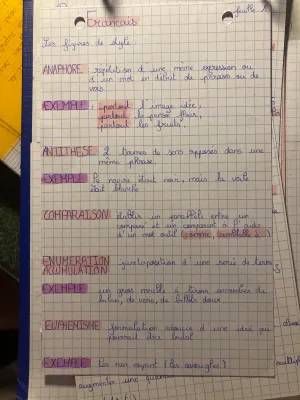 Français
Les figures de style
ANAPHORE : répétition d'une même expression ou
d'un mot en début de phrases ou de
vers.
EXEMPLE : partout l'image idée,
partout la pensée fleur,
partout les fruits
ANTITHÈSE : 2 termes de sens opposés dans une
même phrase.
EXEMPLE : Le navire était noir, mais la voile
était blanche
COMPARAISON : établir un parallèle entre un
comparé et un comparant à l'aide
d'un mot outil (comme, semblable à)
ENUMERATION : juxtaposition d'une série de termes
ACCUMULATION
EXEMPLE : un gros meuble à tiroir encombré de
bilan, de vers, de billets doux
EUPHEMISME : formulation adoucie d'une idée qui
pourrait être brutal
EXEMPLE : Les non voyant (les aveugles)
augmenter une